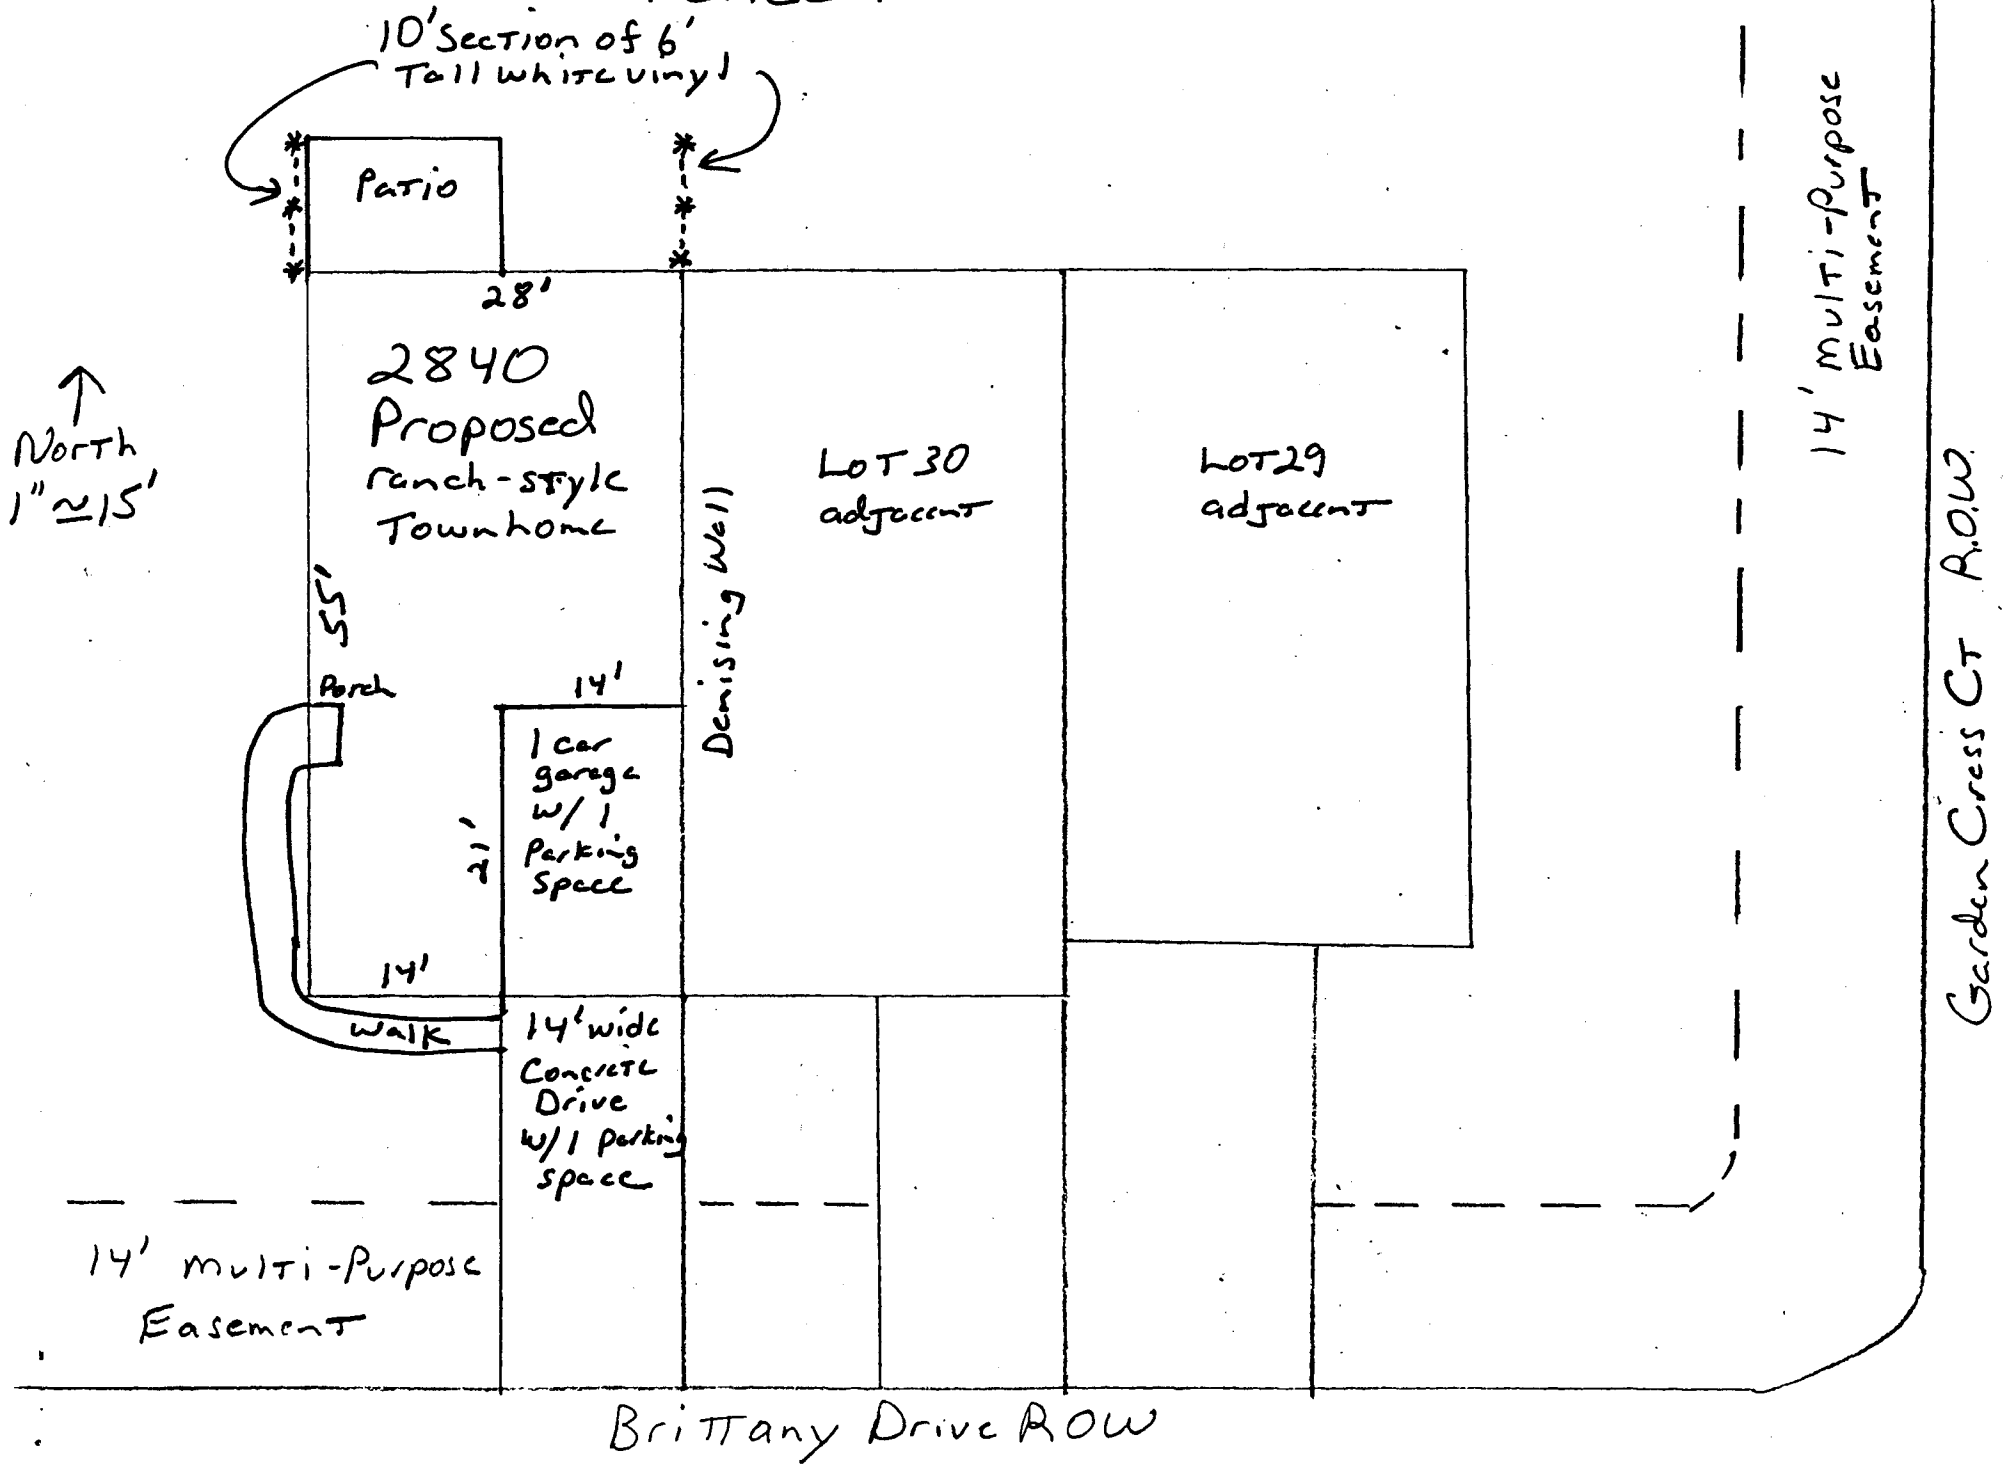 10' Section of 6'
Tall white vinyl
Patio
28'
2840
Proposed
ranch-style
Townhome
North
1" ≃ 15'
55'
Porch
14'
1 car
garage
w/ 1
Parking
space
21'
14'
Walk
14' wide
Concrete
Drive
w/ 1 parking
space
Demising Wall
LOT 30
adjacent
LOT 29
adjacent
14' Multi-Purpose
Easement
Garden Cress CT R.O.W.
14' Multi-Purpose
Easement
Brittany Drive ROW